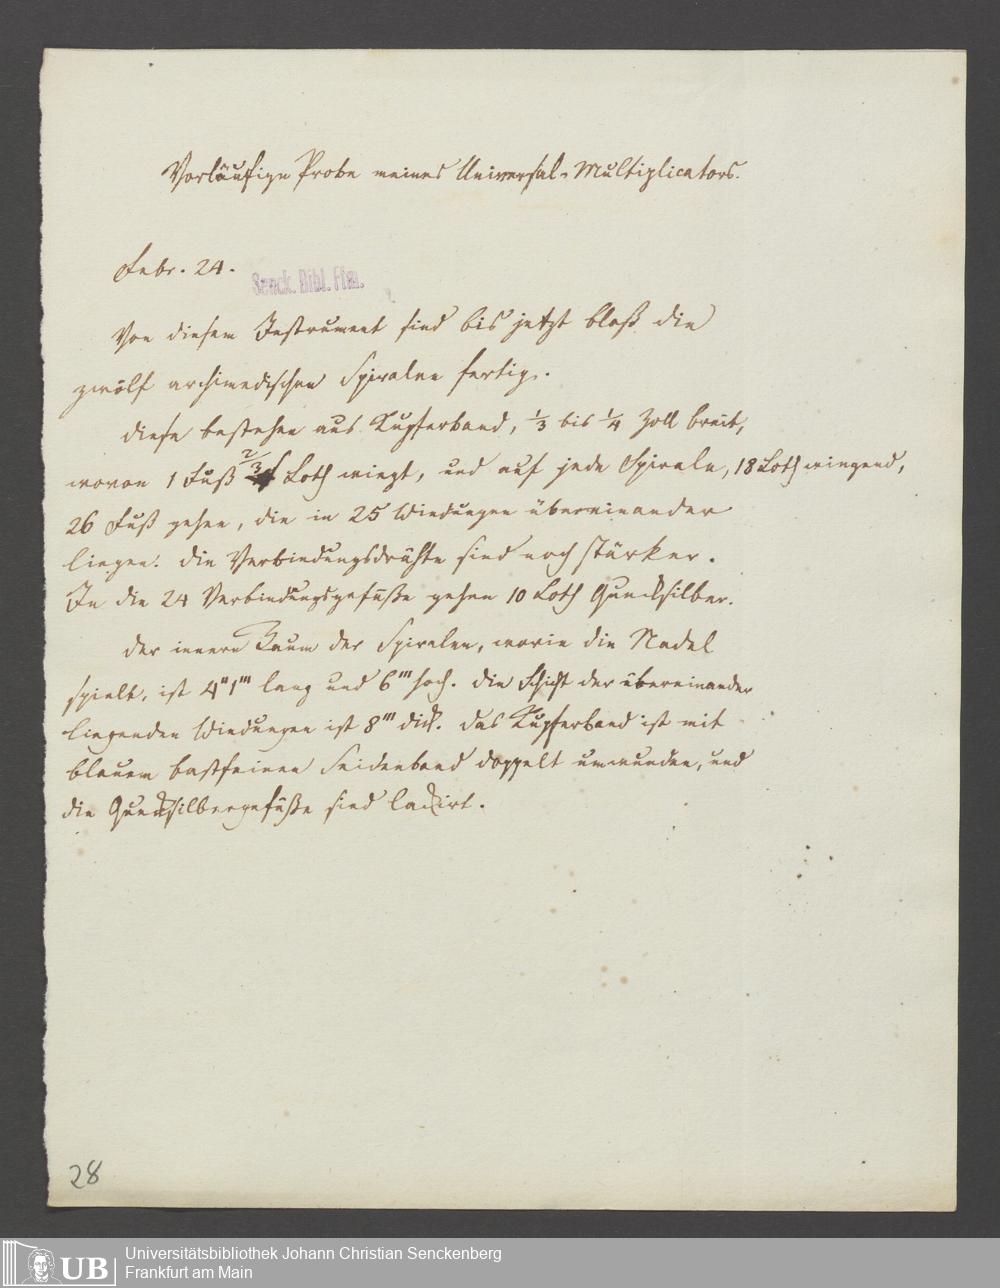 Vorläufige Probe meines Universal-Multiplicators.
Febr. 24.
Senck. Bibl. Ffm.
Von diesem Instrument sind bis jetzt bloß die
zwölf archimedischen Spiralen fertig.
diese bestehen aus Kupferband, 1/3 bis 1/4 Zoll breit,
wovon 1 Fuß 2/3 Loth wiegt, und auf jede Spirale, 18 Loth wiegend,
26 Fuß gehen, die in 25 Windungen übereinander
liegen. die Verbindungsdrähte sind noch stärker.
In die 24 Verbindungsgefäße gehen 10 Loth Quecksilber.
der innere Raum der Spiralen, worin die Nadel
spielt, ist 4" 1''' lang und 6''' hoch. die Schicht der übereinander
liegenden Windungen ist 8''' dick. das Kupferband ist mit
blauem bastfeinen Seidenband doppelt umwunden, und
die Quecksilbergefäße sind lackirt.
28
UB
Universitätsbibliothek Johann Christian Senckenberg
Frankfurt am Main